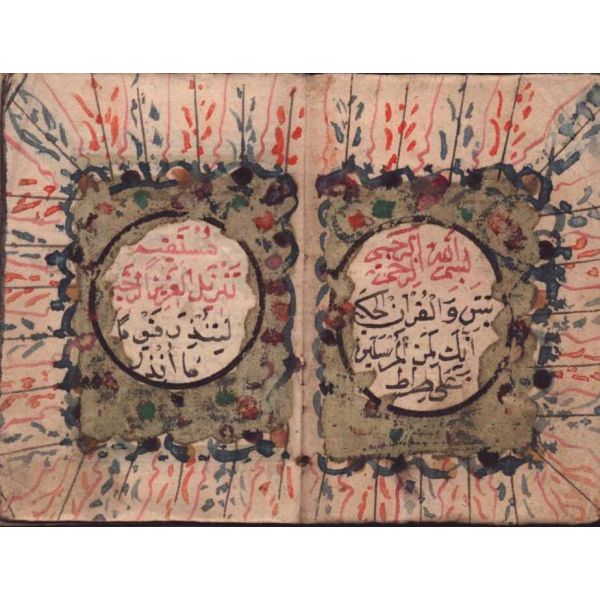 بسم الله الرحمن
الرحيم
يس والقران الحكيم
انك لمن المرسلين
على صراط
مستقيم
تنزيل العزيز الرحيم
لتنذر قوما
ما أنذر